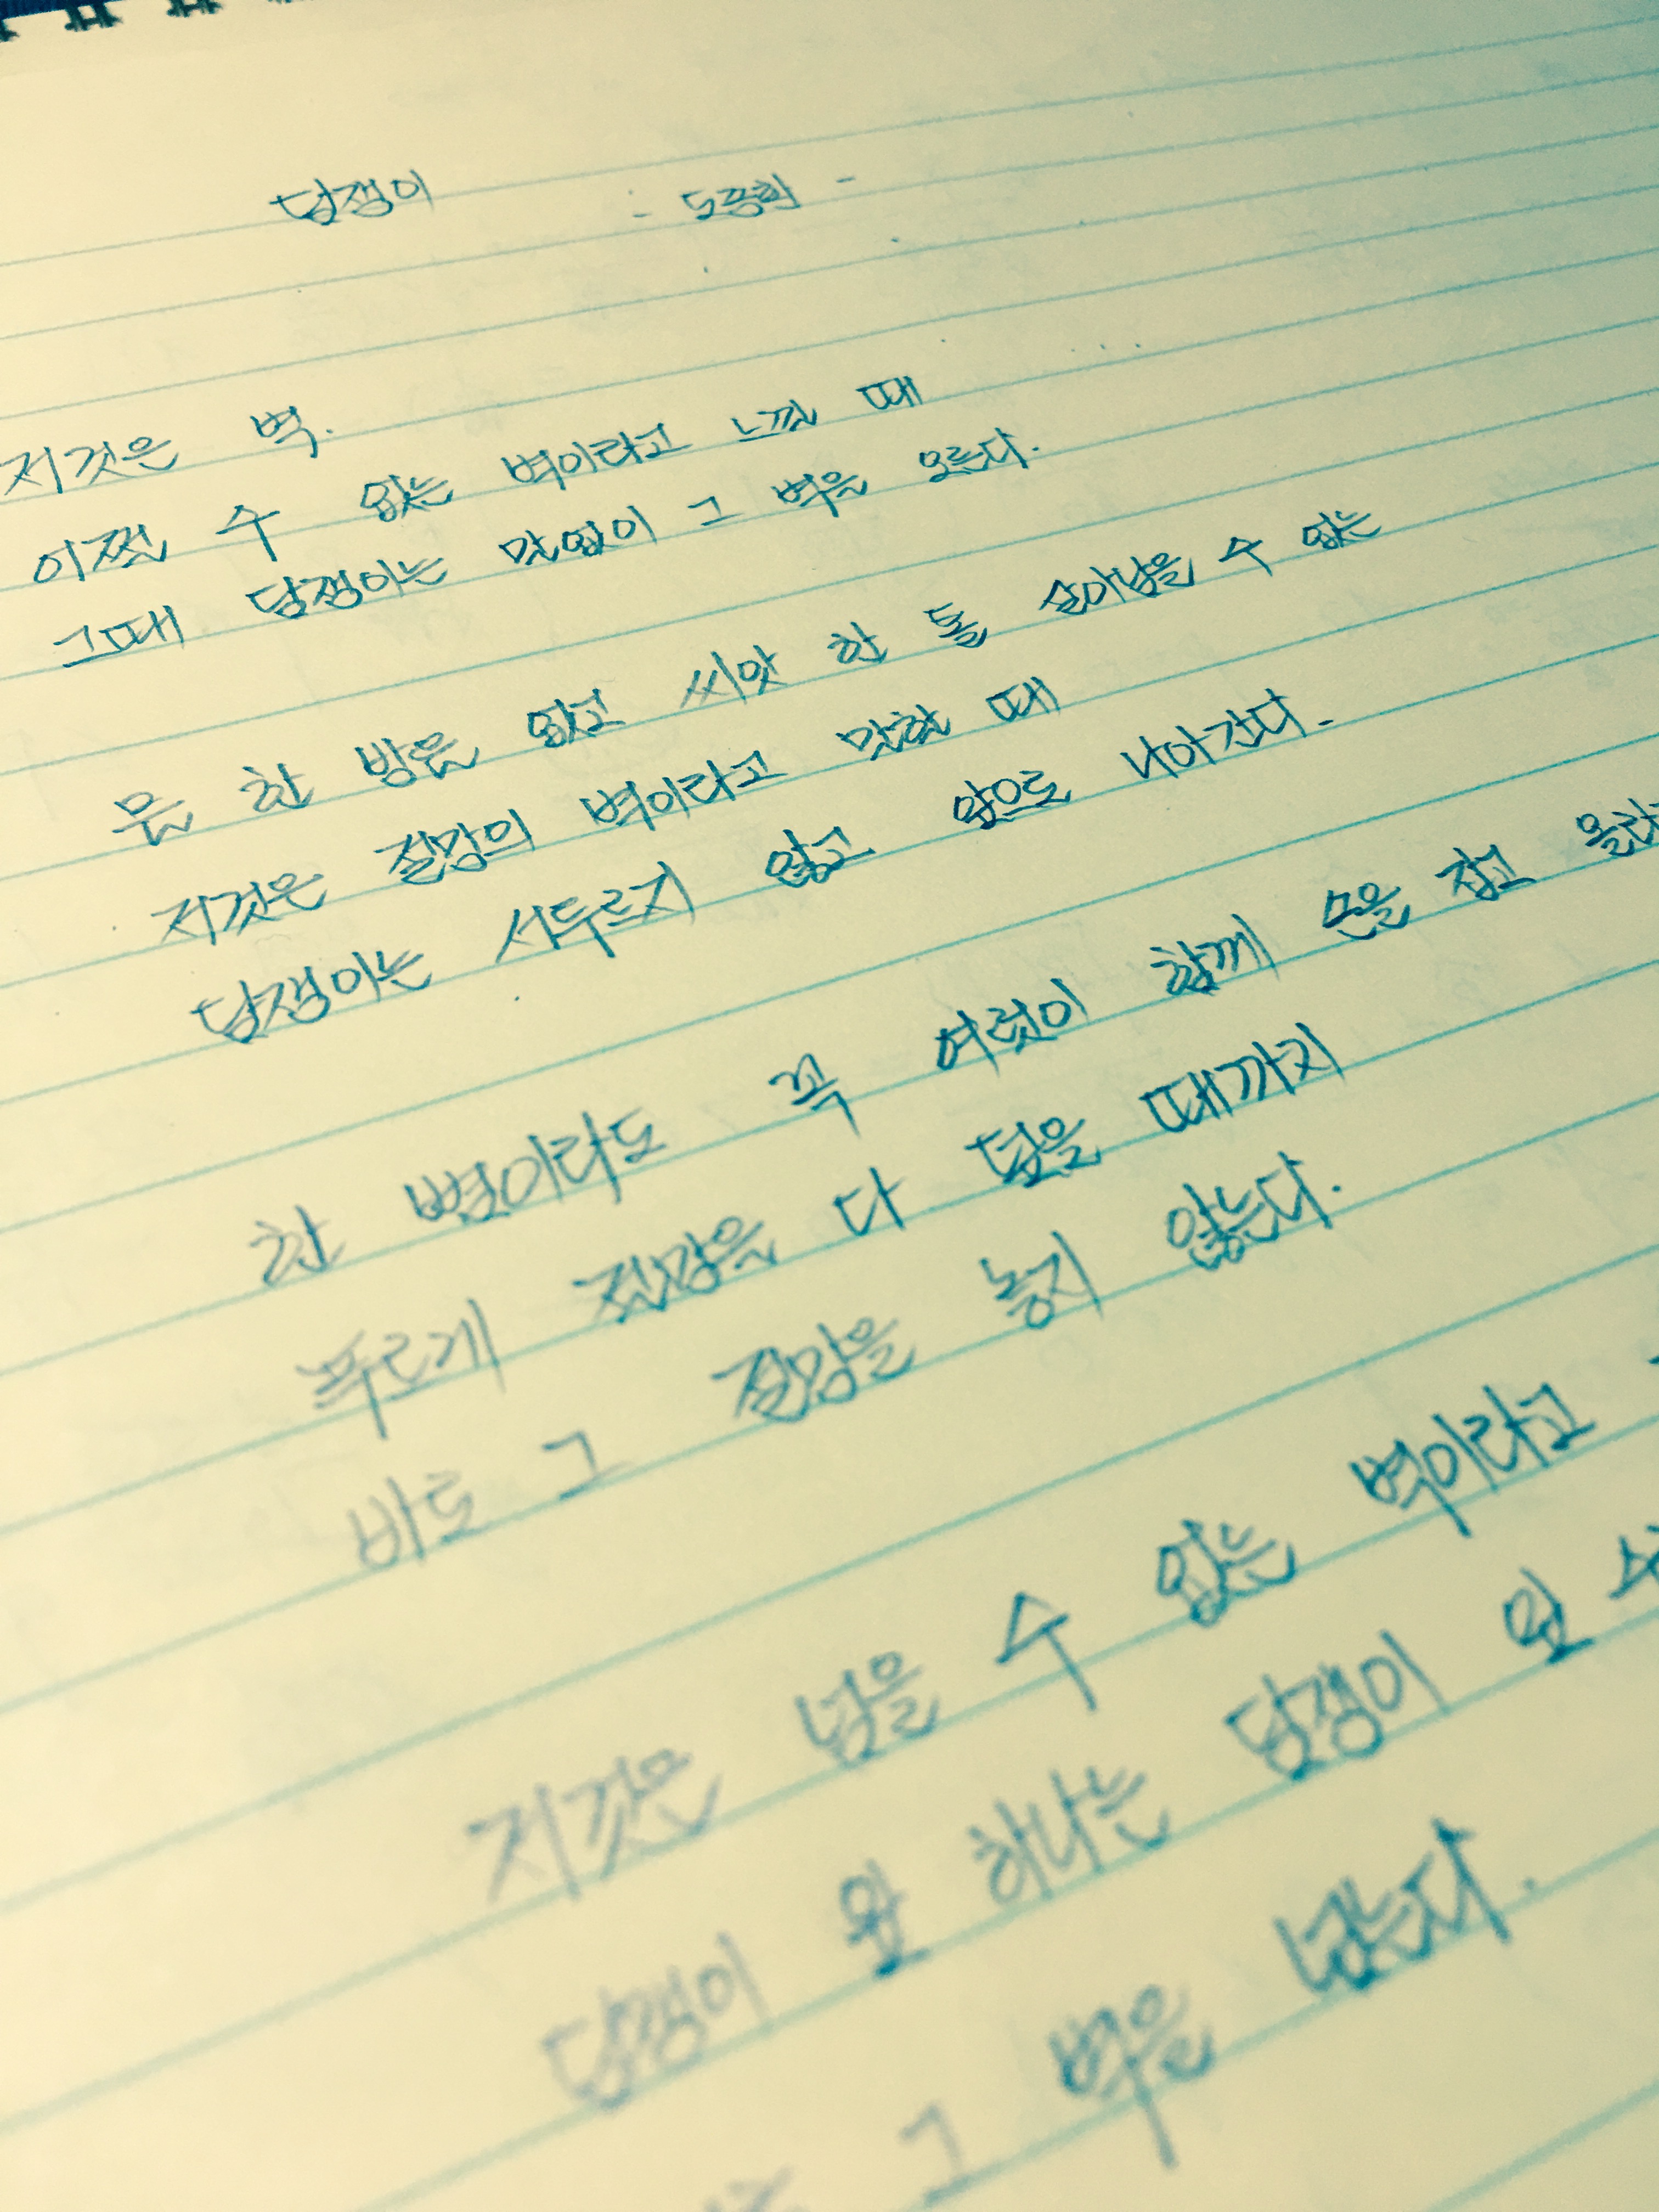 담쟁이 - 도종환 -
저것은 벽.
어쩔 수 없는 벽이라고 느낄 때
그때 담쟁이는 말없이 그 벽을 오른다.
물 한 방울 없고 씨앗 한 톨 살아남을 수 없는
저것은 절망의 벽이라고 말할 때
담쟁이는 서두르지 않고 앞으로 나아간다.
한 뼘이라도 꼭 여럿이 함께 손을 잡고
푸르게 절망을 다 덮을 때까지
바로 그 절망을 놓지 않는다.
저것은 넘을 수 없는 벽이라고
담쟁이 잎 하나는 담쟁이 잎
그 벽을 넘는다.